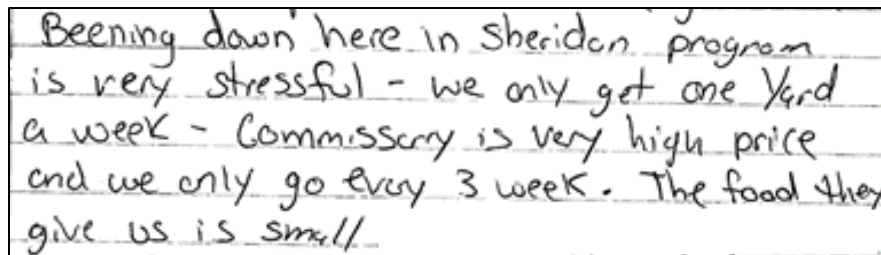 Beening down here in Sheridan program
is very stressful - we only get one Yard
a week - Commissary is very high price
and we only go every 3 week. The food they
give us is small